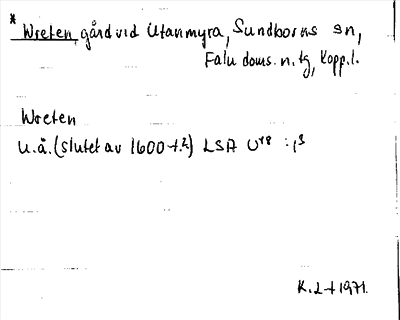 * Wreten, gård vid Utanmyra, Sundborns sn,
Falu doms. n. tg, Kopp. l.
Wreten
u.å. (slutet av 1600-t.?) LSA U18 :
K. L-t 1971.